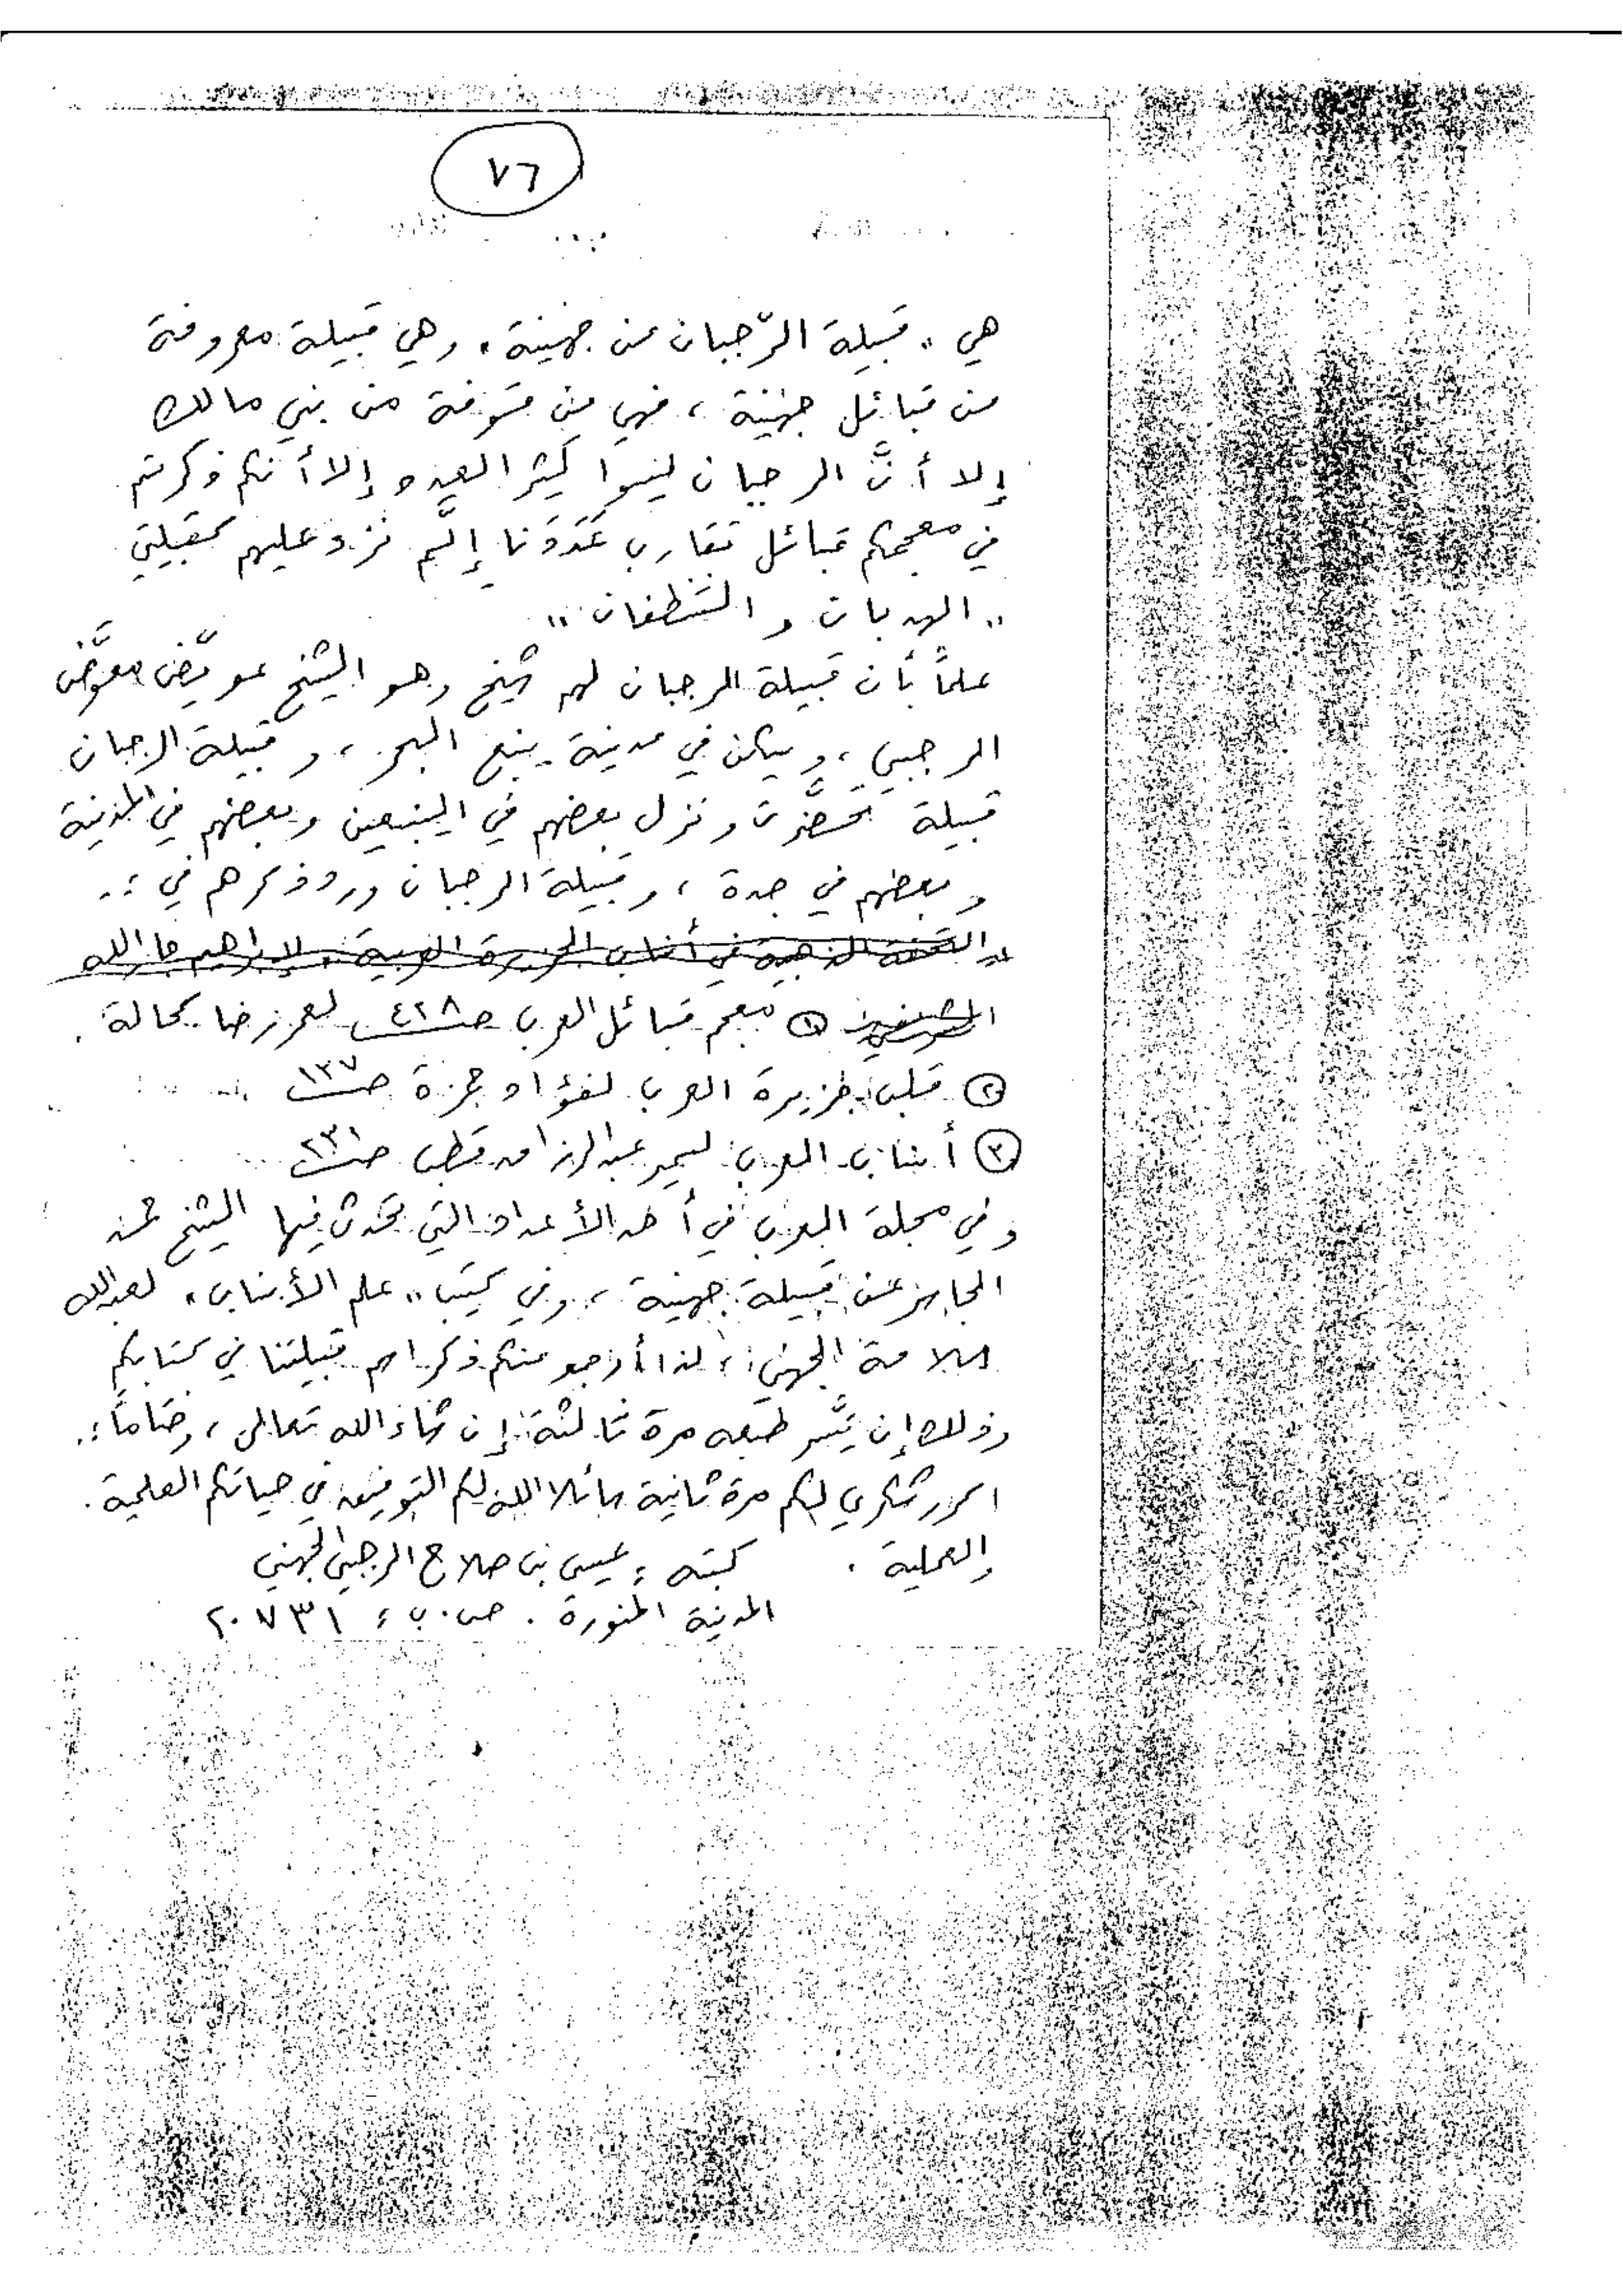 ٧٦
هي " قبيلة الرّجبان من جهينة " وهي قبيلة معروفة
من قبائل جهينة ، فهي من قوفة من بني مالك
إلا أنَّ الرجبان ليسوا كثير العدد إلا أنكم ذكرتم
في معجمكم قبائل تقارب عَدَدَنا إلَّم نزد عليهم كقبيلتي
" الهدبان و الشطفان "
علماً بأن قبيلة الرجبان لهم شيخ وهو الشيخ عويّض معوَّض
الرجبي ، ويسكن في مدينة ينبع البحر ، وقبيلة الرجبان
قبيلة تحضَّرت ونزل بعضهم في الينبعين وبعضهم في المدينة
وبعضهم في جدة ، وقبيلة الرجبان ورد ذكرهم في :.
" التحفة الذهبية في أنساب الجزيرة العربية " لإبراهيم جارالله
الشريفي ① معجم قبائل العرب صـ ٤٢٨ لعمر رضا كحالة .
② قلب جزيرة العرب لفؤاد حمزة صـ ١٣٧
③ أنساب العرب لسمير عبدالرزاق قطب صـ ٢٣١
وفي مجلة العرب في أحد الأعداد التي تحدث فيها الشيخ حمد
الجاسر عن قبيلة جهينة ، وفي كتيب " علم الأنساب " لعبدالله
سلامة الجهني ، لذا أرجو منكم ذكر اسم قبيلتنا في كتابكم
وذلك إن يَسَّر طبعه مرة ثالثة إن شاء الله تعالى ، وختاماً :.
اكرر شكري لكم مرة ثانية سائلا الله لكم التوفيق في حياتكم العلمية .
والعملية . كتبه : عيسى بن صلاح الرجبي الجهني
المدينة المنورة . ص . ب : ٢٠٧٣١